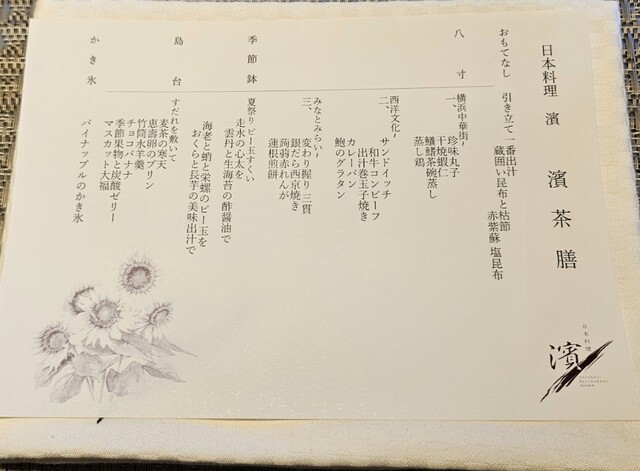 日本料理 濱 濱茶膳
おもてなし 引き立て一番出汁
蔵囲い昆布と枯節
赤紫蘇 塩昆布
八寸 一、横浜中華街〜
珍味丸子
干焼蝦仁
鱶鰭茶碗蒸し
蒸し鶏
二、西洋文化〜
サンドイッチ
和牛コンビーフ
出汁巻玉子焼き
カレーパン
鮑のグラタン
三、みなとみらい〜
変わり握り三貫
銀だら西京焼き
蒟蒻赤れんが
蓮根煎餅
季節鉢 夏祭りビー玉すくい
走水の心太を
雲丹と生海苔の酢醤油で
海老と蛸と栄螺のビー玉を
おくらと長芋の美味出汁で
島台 すだれを敷いて
麦茶の寒天
恵壽卵のプリン
竹筒水羊羹
チョコバナナ
季節果物と炭酸ゼリー
マスカット大福
かき氷 パイナップルのかき氷
日本料理
濱